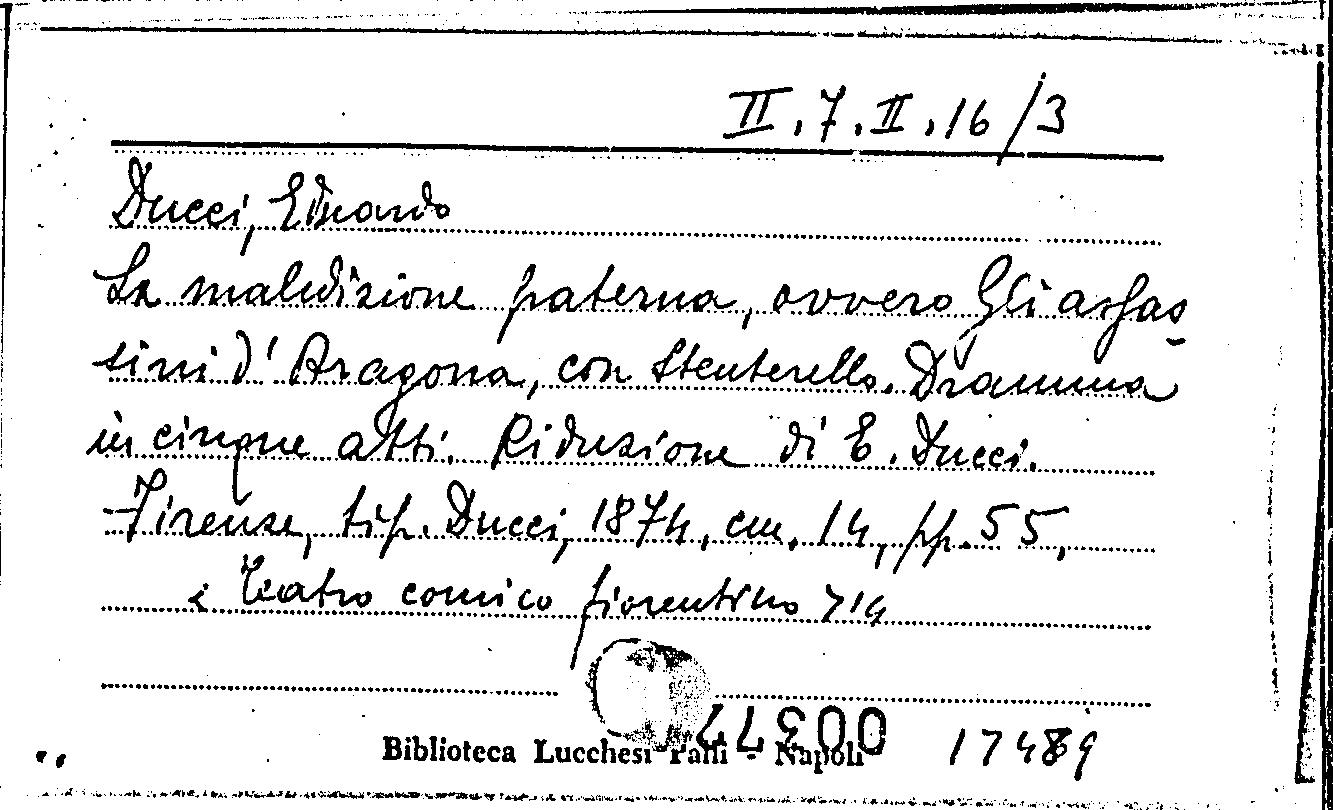 II.7.II.16/3
Ducci, Eduardo
La maledizione paterna, ovvero Gli assas
sini d'Aragona, con Stenterello. Dramma
in cinque atti. Riduzione di E. Ducci.
Firenze, tip. Ducci, 1874, cm. 14, pp. 55,
< Teatro comico fiorentino > 14
Biblioteca Lucchesi Palli - Napoli
17489